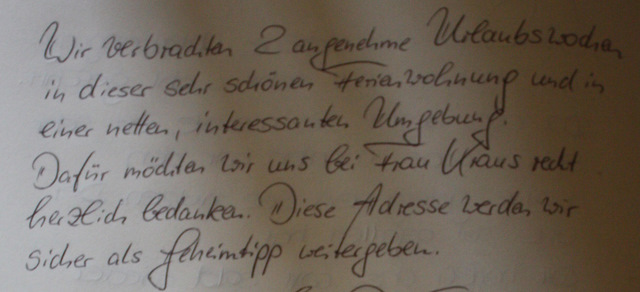 Wir verbrachten 2 angenehme Urlaubswochen
in dieser sehr schönen Ferienwohnung und in
einer netten, interessanten Umgebung.
Dafür möchten wir uns bei Frau Kraus recht
herzlich bedanken. Diese Adresse werden wir
sicher als Geheimtipp weitergeben.